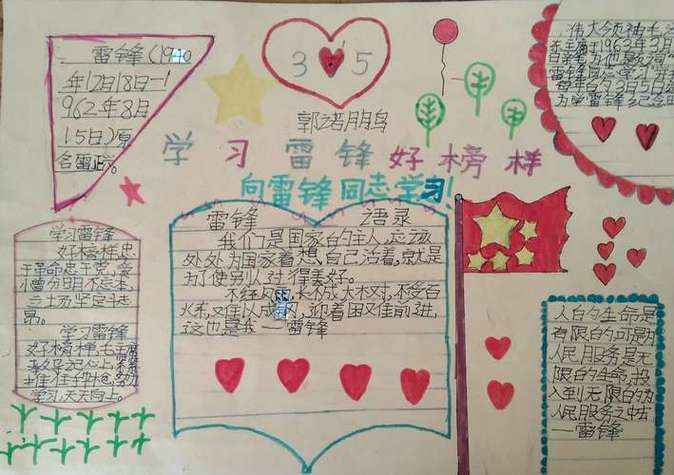 雷锋(1940
年12月18日—1
962年8月
15日)原
名雷正
3 5
郭若朋鸟
学习雷锋好榜样
向雷锋同志学习!
伟大领袖毛
1963年3月
学习雷锋
好榜样忠
于革命忠于党,爱
憎分明不忘本,
立场坚定斗志
昂。
学习雷锋
好榜样,毛主席
教导记心上
学习天天向上。
雷锋 语录
我们是国家的主人,应该
处处为国家着想,自己活着,就是
为了使别人过得美好。
不经风雨,长不成大树,不受百
炼,难以成钢,迎着困难前进,
这也是我—雷锋
人的生命是
有限的可是为
人民服务是无
限的生命,投
入到无限的为
人民服务之中
—雷锋